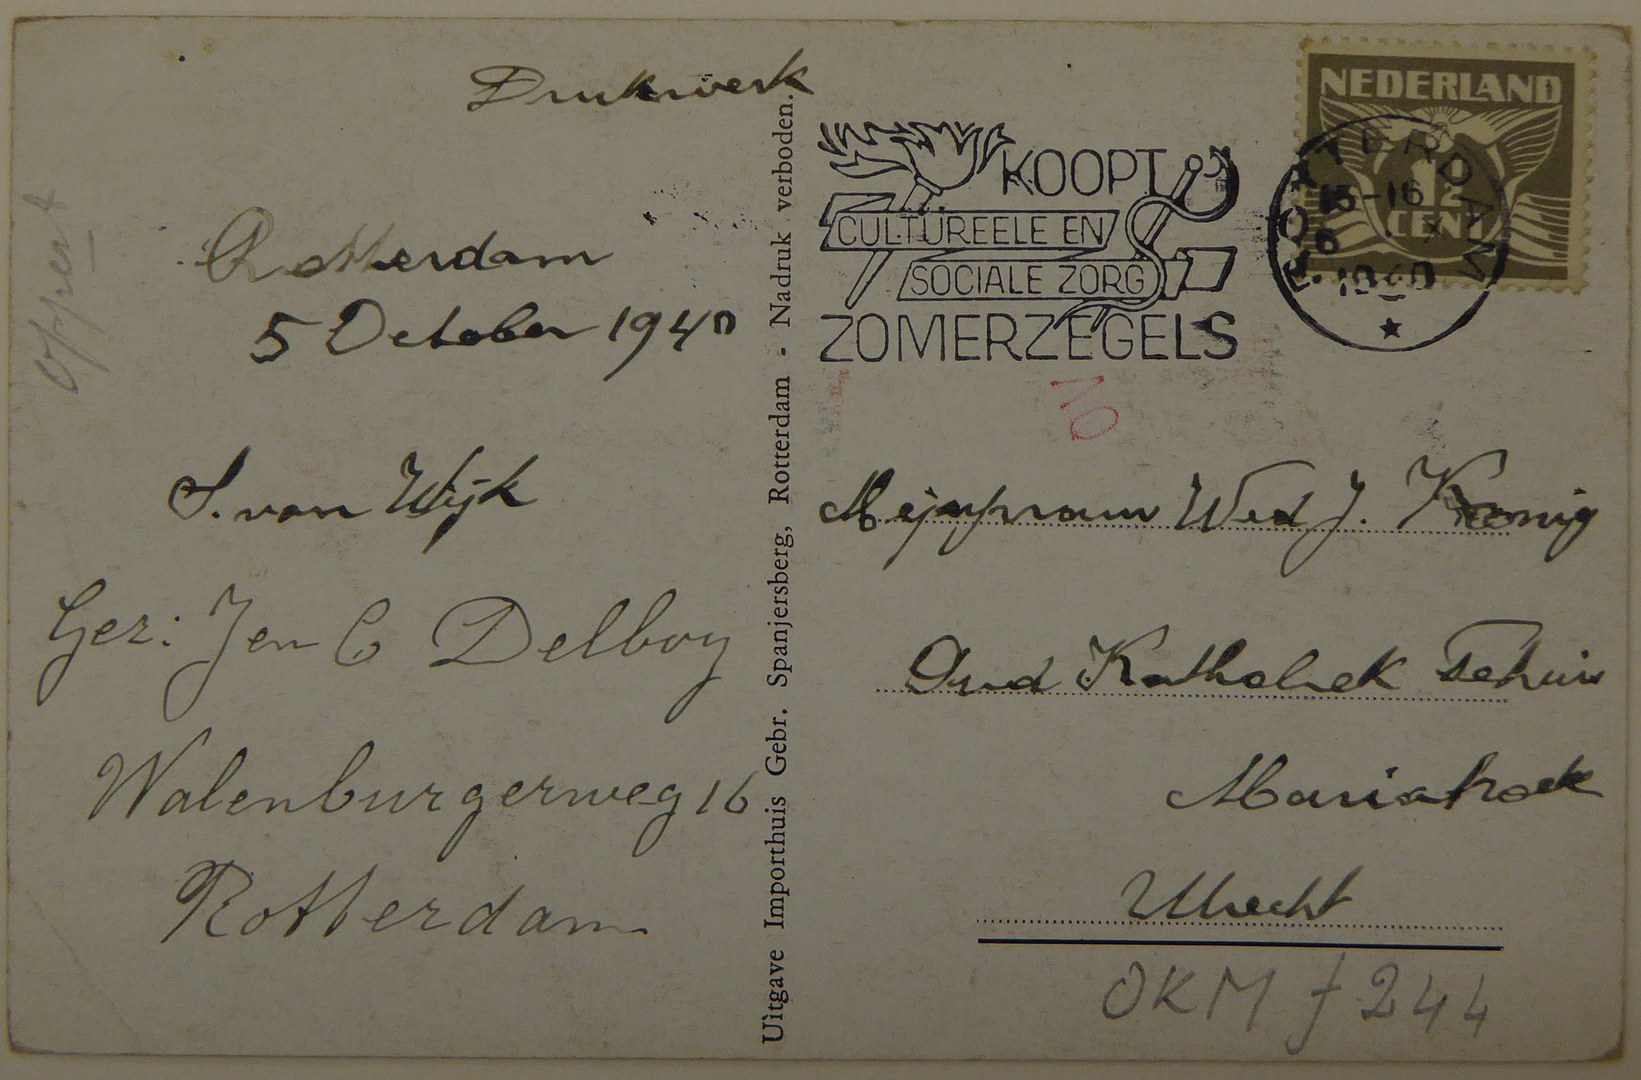 Drukwerk
Rotterdam
5 October 1940
S. van Wijk
Gez: Jen C Delboy
Walenburgerweg 16
Rotterdam
Oppert
Uitgave Importhuis Gebr. Spanjersberg, Rotterdam - Nadruk verboden.
KOOPT
CULTUREELE EN
SOCIALE ZORG
ZOMERZEGELS
NEDERLAND
1½
CENT
ROTTERDAM
15-16
1940
10
Mejufrouw Wed J. Koenig
Oud Katholiek Tehuis
Mariahoek
Utrecht
OKM f 244